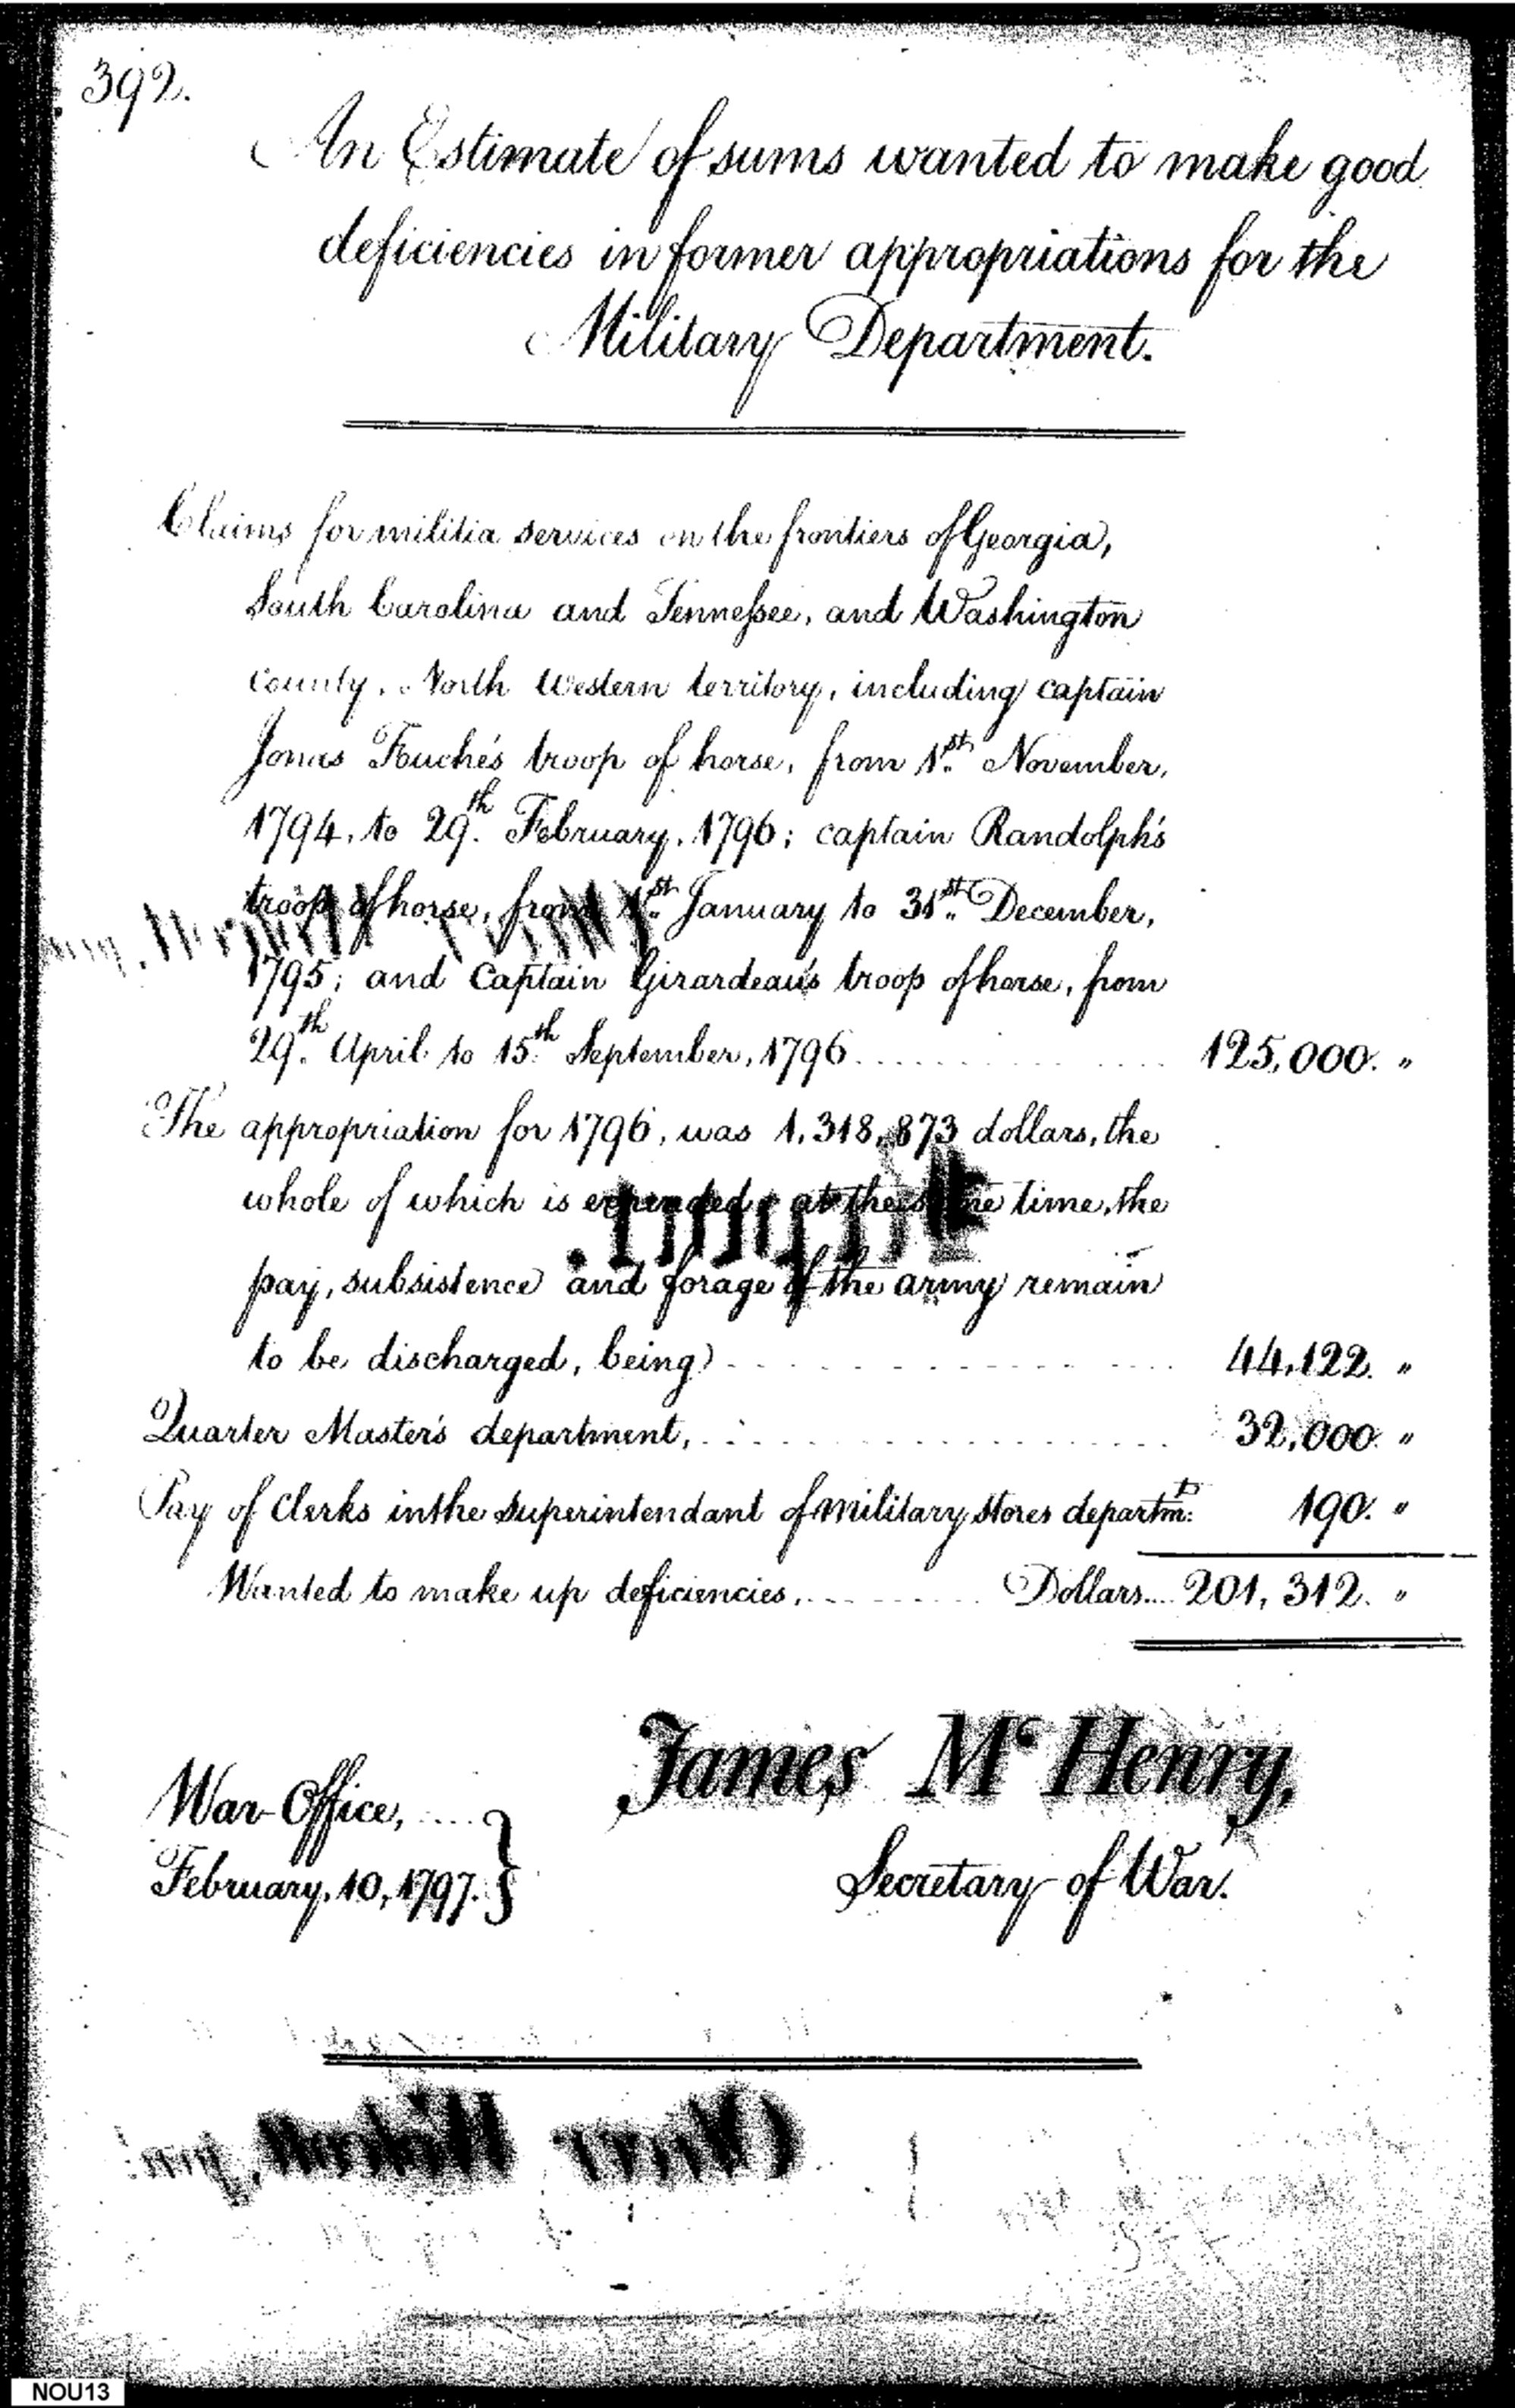 392.
An Estimate of sums wanted to make good
deficiencies in former appropriations for the
Military Department.
Claims for militia services on the frontiers of Georgia,
South Carolina and Tenneſsee, and Washington
County, North Western territory, including captain
Jonas Fouche's troop of horse, from 1st. November,
1794, to 29th. February, 1796; captain Randolph's
troop of horse, from 1st. January to 31st. December,
1795; and Captain Girardeau's troop of horse, from
29th. April to 15th. September, 1796 125,000. "
The appropriation for 1796, was 1,318,873 dollars, the
whole of which is expended, at the same time, the
pay, subsistence and forage of the army remain
to be discharged, being 44,122. "
Quarter Master's department, 32,000. "
Pay of Clerks in the Superintendant of military stores departmt: 190. "
Wanted to make up deficiencies, Dollars.... 201,312. "
James McHenry,
War-Office, .... }
Secretary of War.
February, 10, 1797.
NOU13